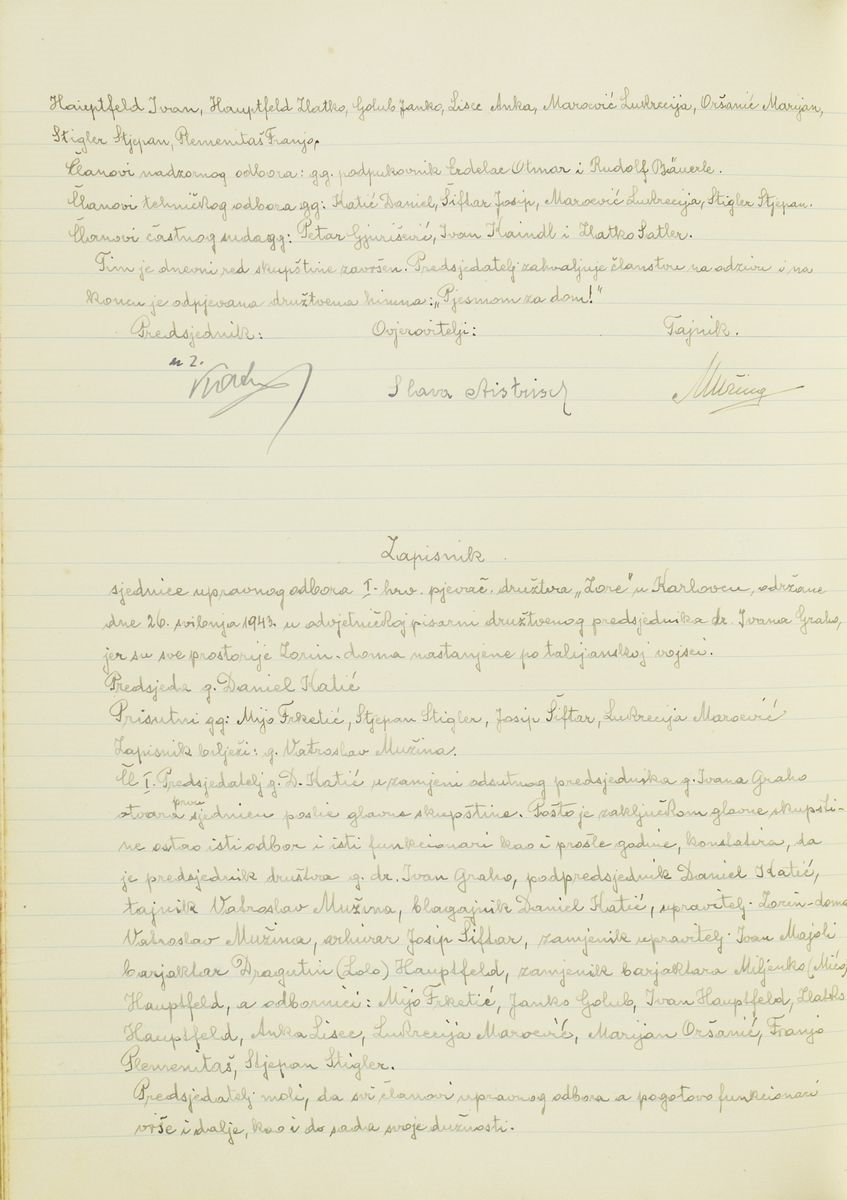 Hauptfeld Ivan, Hauptfeld Zlatko, Golub Janko, Lisec Anka, Maroević Lukrecija, Oršanić Marijan,
Stigler Stjepan, Plemenitaš Franjo.
Članovi nadzornog odbora: gg. podpukovnik Erdelac Otmar i Rudolf Bäuerle.
Članovi tehničkog odbora gg: Katić Daniel, Šiftar Josip, Maroević Lukrecija, Stigler Stjepan.
Članovi častnog suda gg: Petar Gjurišević, Ivan Kaindl i Zlatko Satler.
Tim je dnevni red skupštine završen. Predsjedatelj zahvaljuje članstvu na odzivu i na
koncu je odpjevana družtvena himna: „Pjesmom za dom!“
Predsjednik: Ovjerovitelji: Tajnik.
u z.
Slava
Mužina
Zapisnik.
sjednice upravnog odbora I. hrv. pjevač. družtva „Zore“ u Karlovcu, održane
dne 26. svibnja 1943. u odvjetničkoj pisarni družtvenog predsjednika dr. Ivana Graho,
jer su sve prostorije Zorin-doma nastanjene po talijanskoj vojsci.
Predsjeda g. Daniel Katić
Prisutni gg: Mijo Frketić, Stjepan Stigler, Josip Šiftar, Lukrecija Maroević
Zapisnik bilježi: g. Vatroslav Mužina.
Čl I. Predsjedatelj g. D. Katić u zamjeni odsutnog predsjednika g. Ivana Graho
otvara prvu sjednicu poslie glavne skupštine. Pošto je zaključkom glavne skupšti-
ne ostao isti odbor i isti funkcionari kao i prošle godine, konstatira, da
je predsjednik društva g. dr. Ivan Graho, podpredsjednik Daniel Katić,
tajnik Vatroslav Mužina, blagajnik Daniel Katić, upravitelj Zorin-doma
Vatroslav Mužina, arhivar Josip Šiftar, zamjenik upravitelj Ivan Majoli
barjaktar Dragutin (Lolo) Hauptfeld, zamjenik barjaktara Miljenko (Mićo)
Hauptfeld, a odbornici: Mijo Frketić, Janko Golub, Ivan Hauptfeld, Zlatko
Hauptfeld, Anka Lisec, Lukrecija Maroević, Marijan Oršanić, Franjo
Plemenitaš, Stjepan Stigler.
Predsjedatelj moli, da svi članovi upravnog odbora a pogotovo funkcionari
vrše i dalje, kao i do sada svoje dužnosti.